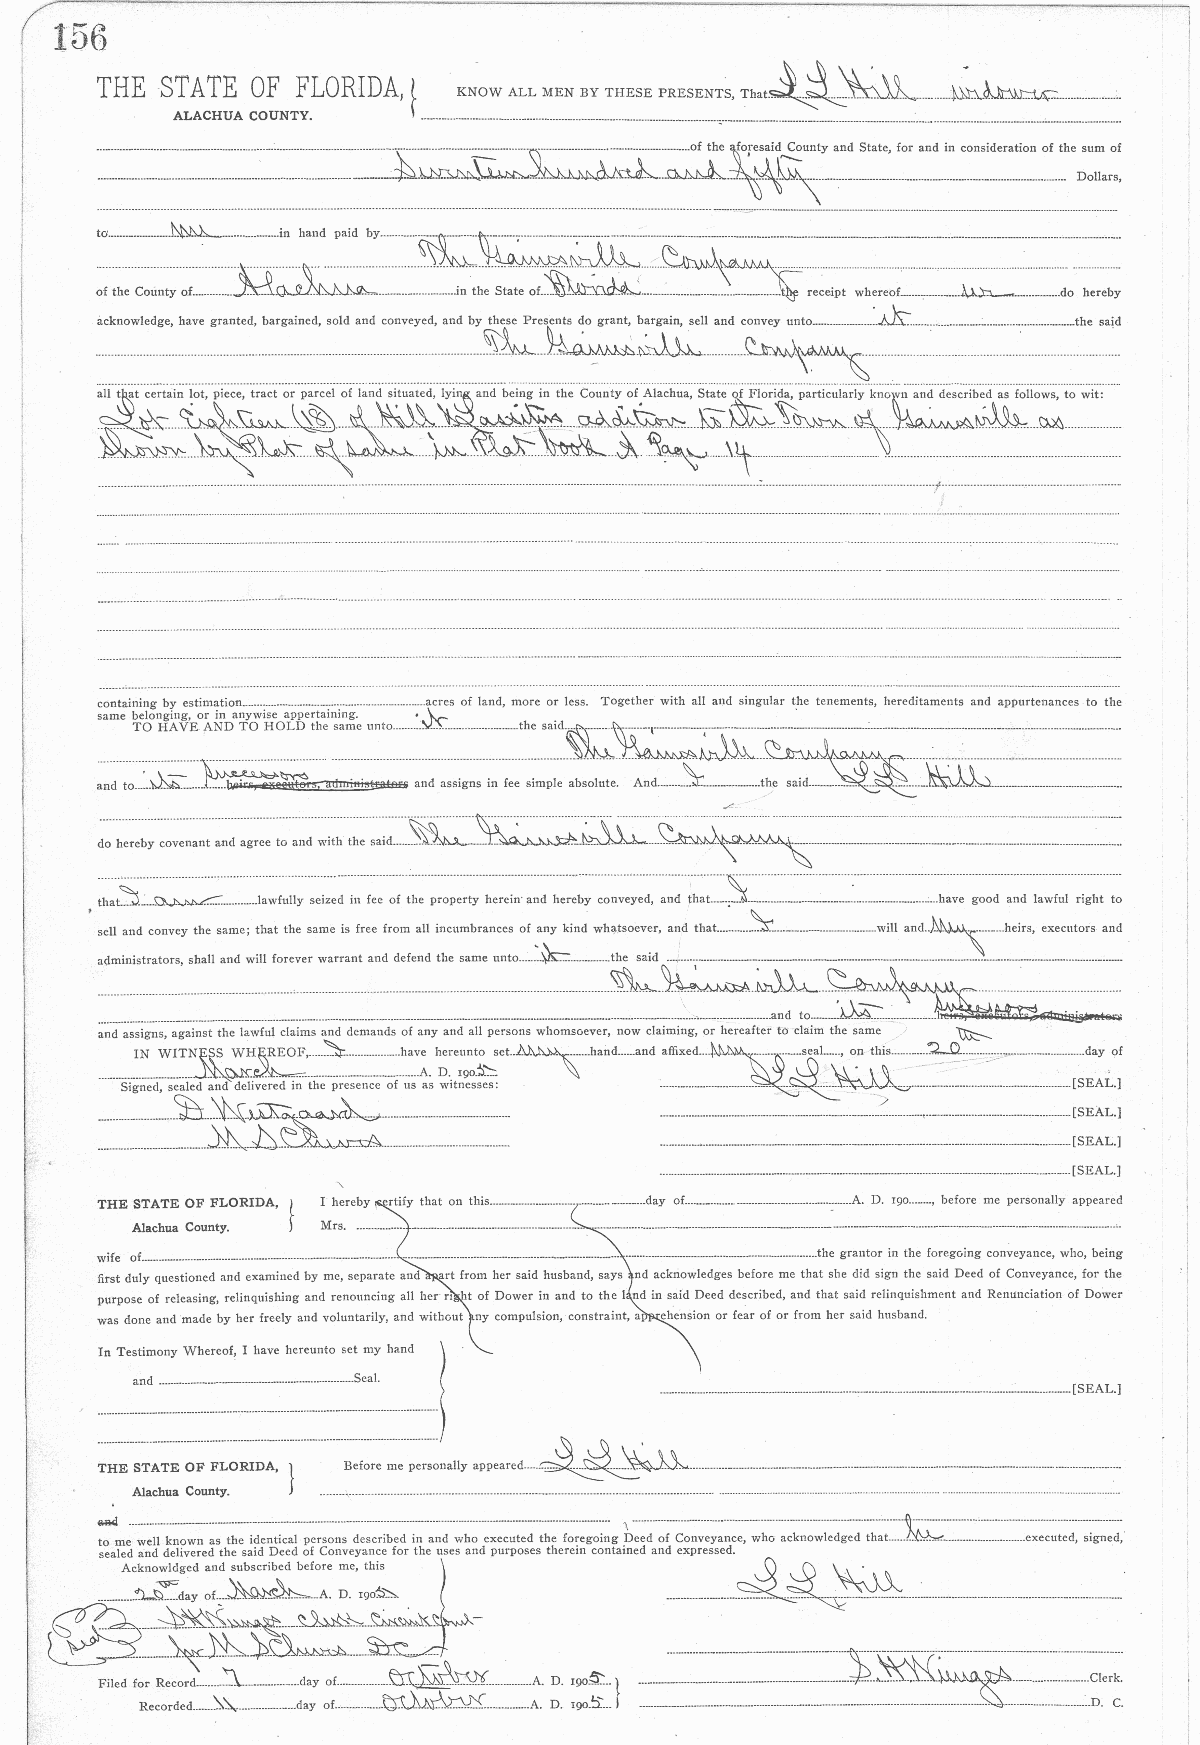 156
THE STATE OF FLORIDA, KNOW ALL MEN BY THESE PRESENTS, That L L Hill widower
ALACHUA COUNTY.
of the aforesaid County and State, for and in consideration of the sum of
Seventeen hundred and fifty Dollars,
to me in hand paid by
The Gainesville Company
of the County of Alachua in the State of Florida the receipt whereof do hereby
acknowledge, have granted, bargained, sold and conveyed, and by these Presents do grant, bargain, sell and convey unto it the said
The Gainesville Company
all that certain lot, piece, tract or parcel of land situated, lying and being in the County of Alachua, State of Florida, particularly known and described as follows, to wit:
Lot Eighteen (18) of Hill & addition to the Town of Gainesville as
shown by Plat of same in Plat book A Page 14
containing by estimation acres of land, more or less. Together with all and singular the tenements, hereditaments and appurtenances to the
same belonging, or in anywise appertaining.
TO HAVE AND TO HOLD the same unto it the said
The Gainesville Company
and to its Successors heirs, executors, administrators and assigns in fee simple absolute. And I the said L L Hill
do hereby covenant and agree to and with the said The Gainesville Company
that I am lawfully seized in fee of the property herein and hereby conveyed, and that I have good and lawful right to
sell and convey the same; that the same is free from all incumbrances of any kind whatsoever, and that I will and My heirs, executors and
administrators, shall and will forever warrant and defend the same unto it the said
The Gainesville Company
and to its Successors heirs, executors, administrators
and assigns, against the lawful claims and demands of any and all persons whomsoever, now claiming, or hereafter to claim the same
IN WITNESS WHEREOF, I have hereunto set My hand and affixed My seal, on this 20th day of
March A. D. 1905
Signed, sealed and delivered in the presence of us as witnesses: L L Hill [SEAL.]
D Westgaard [SEAL.]
M S Cheves [SEAL.]
[SEAL.]
THE STATE OF FLORIDA, I hereby certify that on this day of A. D. 190 , before me personally appeared
Alachua County. Mrs.
wife of the grantor in the foregoing conveyance, who, being
first duly questioned and examined by me, separate and apart from her said husband, says and acknowledges before me that she did sign the said Deed of Conveyance, for the
purpose of releasing, relinquishing and renouncing all her right of Dower in and to the land in said Deed described, and that said relinquishment and Renunciation of Dower
was done and made by her freely and voluntarily, and without any compulsion, constraint, apprehension or fear of or from her said husband.
In Testimony Whereof, I have hereunto set my hand
and Seal.
[SEAL.]
THE STATE OF FLORIDA, Before me personally appeared L L Hill
Alachua County.
and
to me well known as the identical persons described in and who executed the foregoing Deed of Conveyance, who acknowledged that he executed, signed,
sealed and delivered the said Deed of Conveyance for the uses and purposes therein contained and expressed.
Acknowldged and subscribed before me, this
20th day of March A. D. 1905 L L Hill
S H Wienges Clerk Circuit Court
seal for M S Cheves D C
Filed for Record 7 day of October A. D. 1905 S. H Wienges Clerk.
Recorded 11 day of October A. D. 1905 D. C.